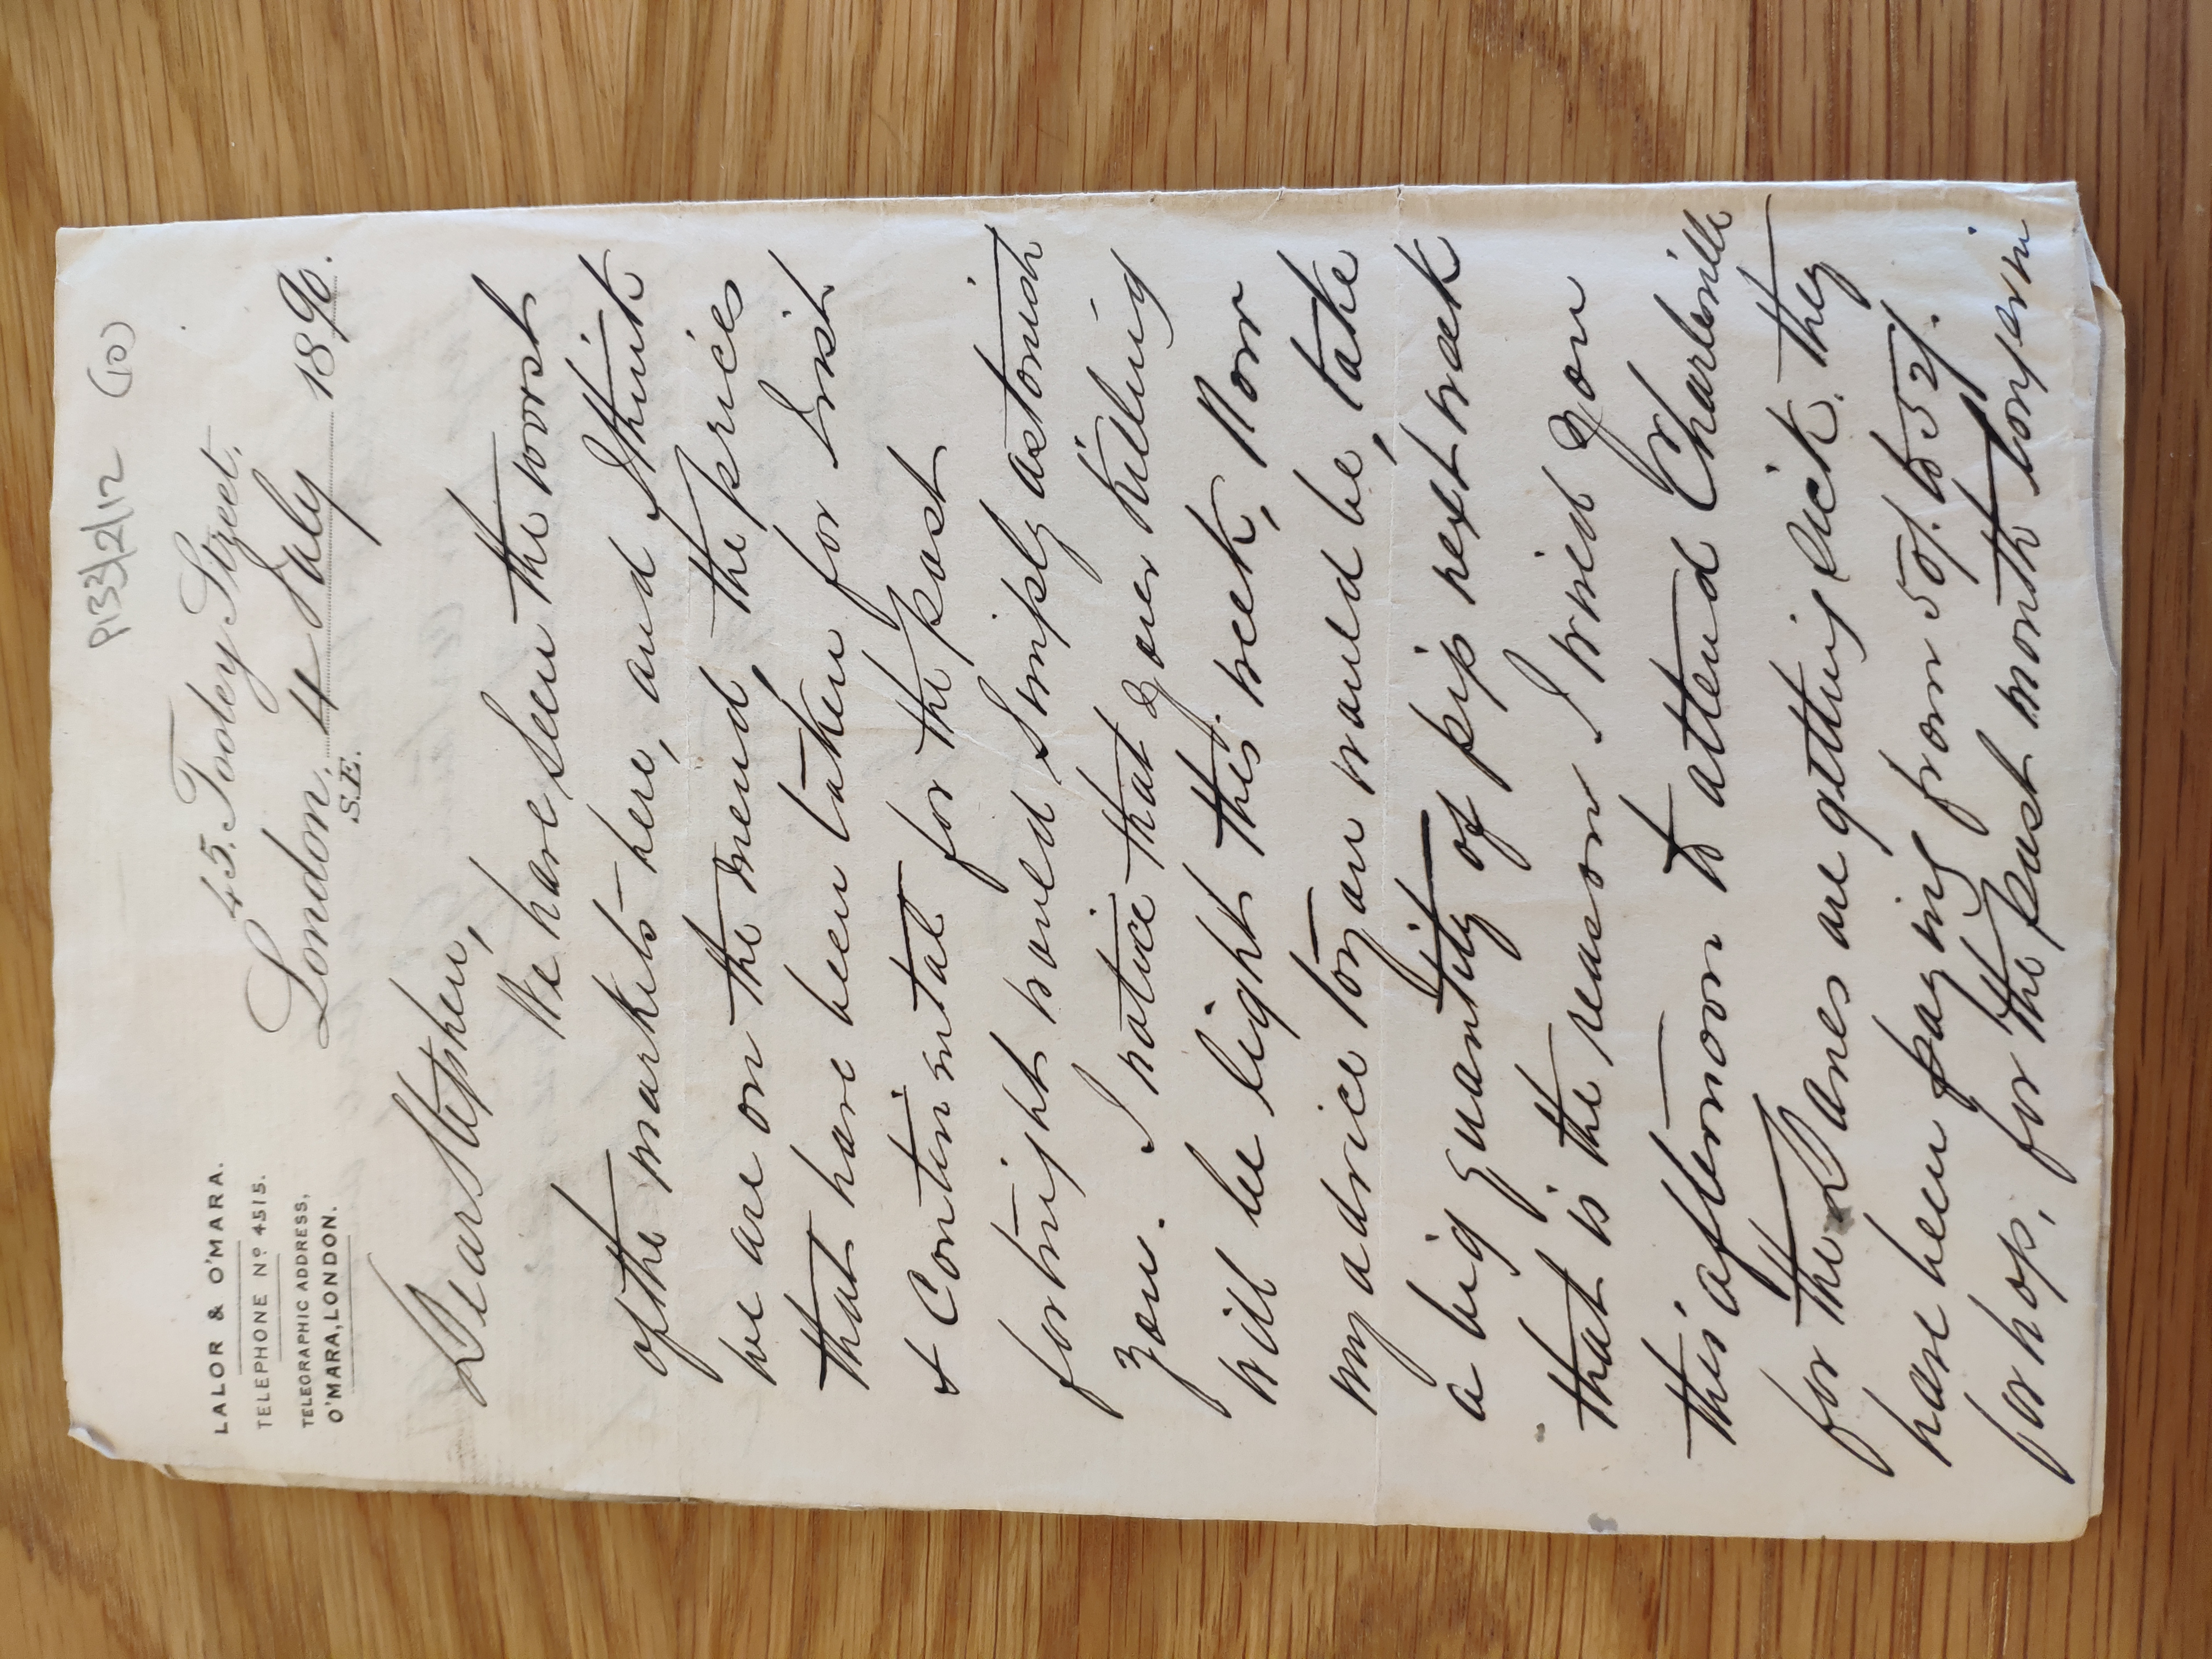 P133/2/12 (10)
LALOR & O'MARA.
TELEPHONE Nº 4515.
TELEGRAPHIC ADDRESS,
O'MARA, LONDON.
45, Tooley Street,
London, 4 July 1890.
S.E.
Dear Stephen,
We have seen the worst
of the markets here, and I think
we are on the mend, the prices
that have been taken for Irish
& Continental for the past
fortnight would simply astonish
you. I notice that your killing
will be light this week, Now
my advice to you would be, take
a big quantity of pip next week
that is the reason I wired you
this afternoon to attend Charleville
for the Danes are getting sick, they
have been paying from 50/. to 52/.
for hop, for the past month